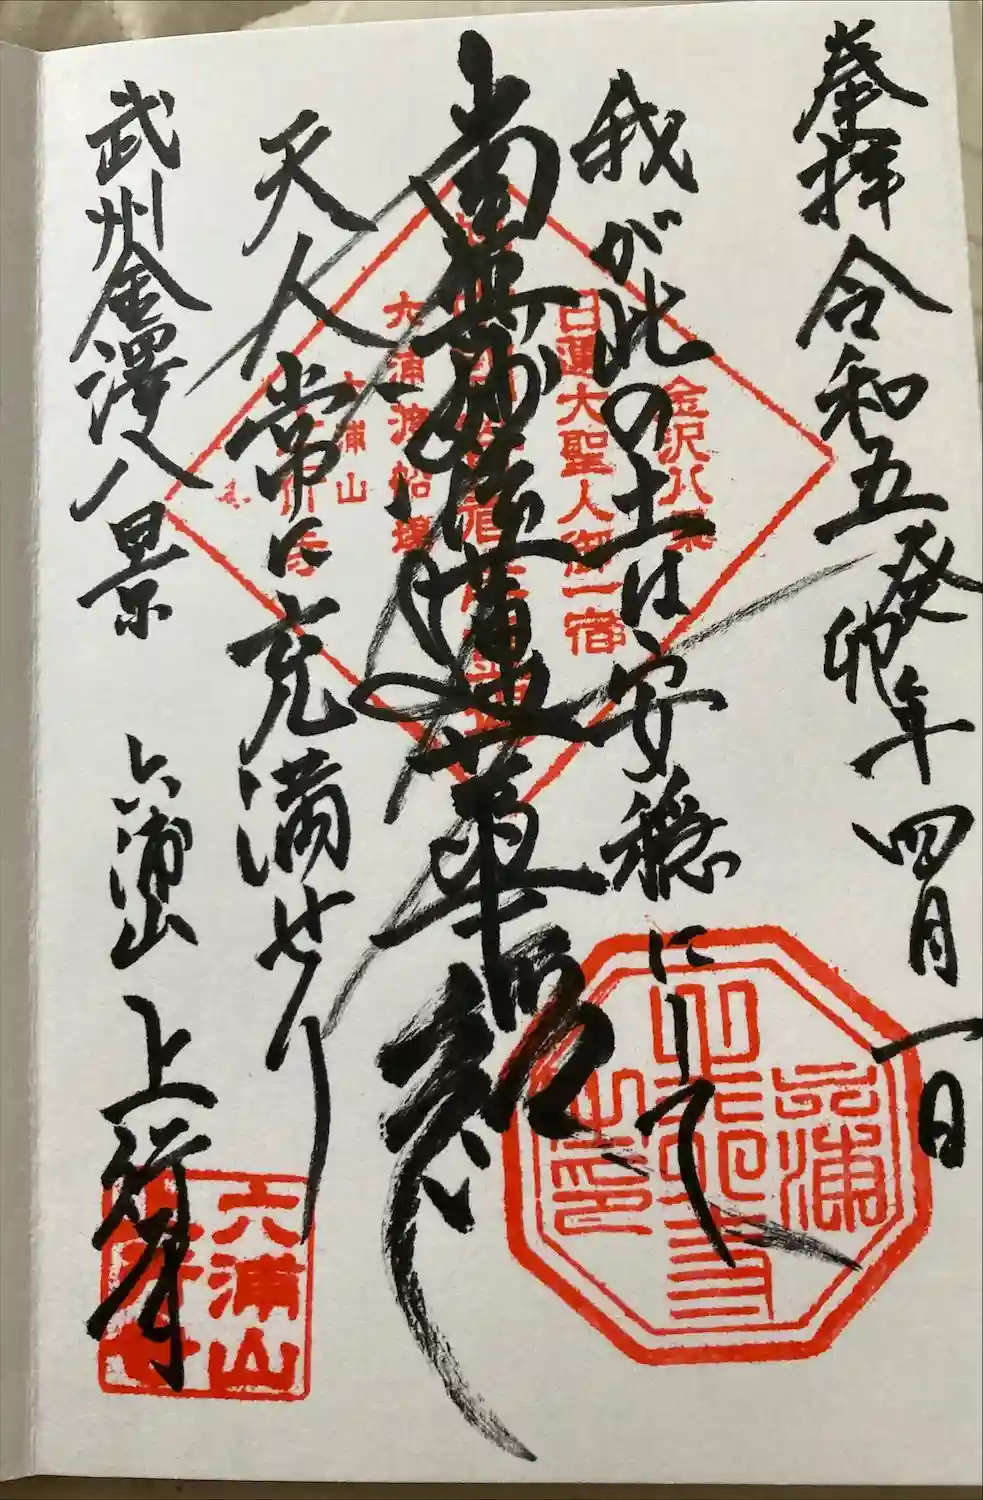 奉拝 令和五癸卯年四月一日
我が此の土は安穏にして
南無妙法蓮華経
天人常に充満せり
武州金澤八景 六浦山 上行寺
金沢八景
日蓮大聖人御一宿
六浦山
六浦山